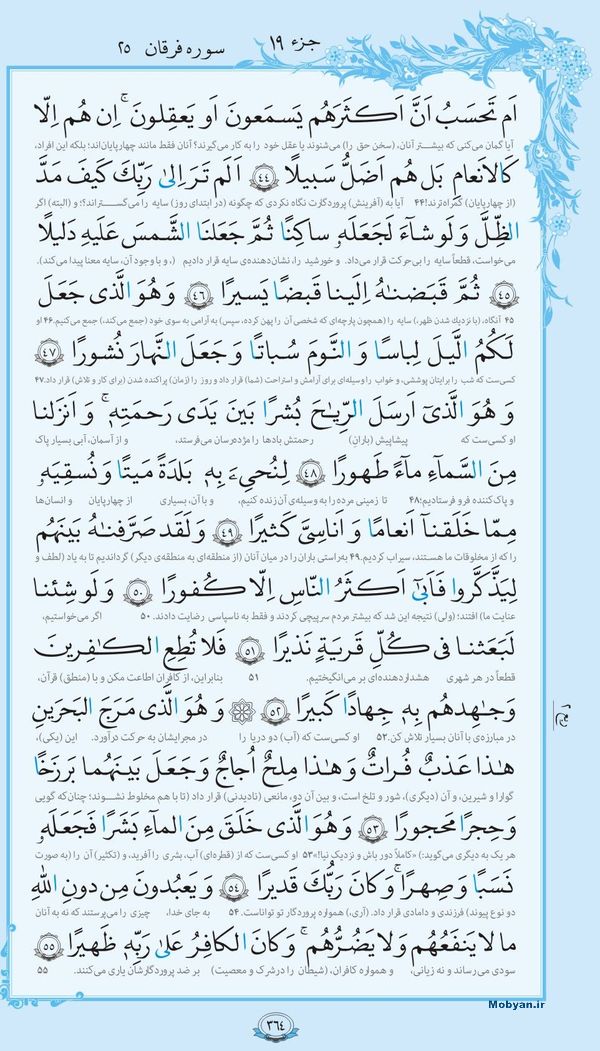 جزء ۱۹
سوره فرقان ۲۵
اَم تَحسَبُ اَنَّ اَکثَرَهُم یَسمَعونَ اَو یَعقِلونَ ۚ اِن هُم اِلّا
آیا گمان می‌کنی که بیشتر آنان، (سخن حق را) می‌شنوند یا عقل خود را به کار می‌گیرند؟ آنان فقط مانند چهارپایان‌اند؛ بلکه این افراد،
کَالاَنعامِ بَل هُم اَضَلُّ سَبیلًا ﴿۴۴﴾ اَلَم تَرَ اِلیٰ رَبِّکَ کَیفَ مَدَّ
(از چهارپایان) گمراه‌ترند! ۴۴ آیا به (آفرینش) پروردگارت نگاه نکردی که چگونه (در ابتدای روز) سایه را می‌گستراند؟؛ و (البته) اگر
الظِّلَّ وَ لَو شاءَ لَجَعَلَهٗ ساکِنًا ثُمَّ جَعَلنَا الشَّمسَ عَلَیهِ دَلیلًا
می‌خواست، قطعاً سایه را بی‌حرکت قرار می‌داد. و خورشید را، نشان‌دهنده‌ی سایه قرار دادیم (، و با وجود آن، سایه معنا پیدا می‌کند).
﴿۴۵﴾ ثُمَّ قَبَضنٰهُ اِلَینا قَبضًا یَسیرًا ﴿۴۶﴾ وَ هُوَ الَّذی جَعَلَ
۴۵ آنگاه، (با نزدیک شدن ظهر،) سایه را (همچون پارچه‌ای که شخصی آن را پهن کرده، سپس) به آرامی به سوی خود (جمع می‌کند،) جمع می‌کنیم. ۴۶ او
لَکُمُ الَّیلَ لِباسًا وَ النَّومَ سُباتًا وَ جَعَلَ النَّهارَ نُشورًا ﴿۴۷﴾
کسی‌ست که شب را برایتان پوششی، و خواب را وسیله‌ای برای آرامش و استراحت (شما) قرار داد و روز را (زمان) پراکنده شدن (برای کار و تلاش) قرار داد. ۴۷
وَ هُوَ الَّذی اَرسَلَ الرِّیٰحَ بُشرًا بَینَ یَدَی رَحمَتِهٖ ۚ وَ اَنزَلنا
او کسی‌ست که پیشاپیش (باران) رحمتش بادها را مژده‌رسان می‌فرستد، و از آسمان، آبی بسیار پاک
مِنَ السَّماءِ ماءً طَهورًا ﴿۴۸﴾ لِنُحیِیَ بِهٖ بَلدَةً مَیتًا وَ نُسقِیَهٗ
و پاک‌کننده فرو فرستادیم؛ ۴۸ تا زمینی مرده را به وسیله‌ی آن زنده کنیم، و با آن، بسیاری از چهارپایان و انسان‌ها
مِمّا خَلَقنا اَنعامًا وَ اَناسِیَّ کَثیرًا ﴿۴۹﴾ وَ لَقَد صَرَّفنٰهُ بَینَهُم
را که از مخلوقات ما هستند، سیراب کردیم. ۴۹ به‌راستی باران را در میان آنان (از منطقه‌ای به منطقه‌ی دیگر) گرداندیم تا به یاد (لطف و
لِیَذَّکَّروا فَاَبیٰ اَکثَرُ النّاسِ اِلّا کُفورًا ﴿۵۰﴾ وَ لَو شِئنا
عنایت ما) افتند؛ (ولی) نتیجه این شد که بیشتر مردم سرپیچی کردند و فقط به ناسپاسی رضایت دادند. ۵۰ اگر می‌خواستیم،
لَبَعَثنا فی کُلِّ قَریَةٍ نَذیرًا ﴿۵۱﴾ فَلا تُطِعِ الکٰفِرینَ
قطعاً در هر شهری هشداردهنده‌ای بر می‌انگیختیم. ۵۱ بنابراین، از کافران اطاعت مکن و با (منطق) قرآن،
وَ جٰهِدهُم بِهٖ جِهادًا کَبیرًا ﴿۵۲﴾ وَ هُوَ الَّذی مَرَجَ البَحرَینِ
در مبارزه‌ی با آنان بسیار تلاش کن. ۵۲ او کسی‌ست که (آب) دو دریا را در مجرایشان به حرکت درآورد. این (یکی)،
هٰذا عَذبٌ فُراتٌ وَ هٰذا مِلحٌ اُجاجٌ وَ جَعَلَ بَینَهُما بَرزَخًا
گوارا و شیرین، و آن (دیگری)، شور و تلخ است، و بین آن دو، مانعی (نادیدنی) قرار داد (تا با هم مخلوط نشوند؛ چنان‌که گویی
وَ حِجرًا مَحجورًا ﴿۵۳﴾ وَ هُوَ الَّذی خَلَقَ مِنَ الماءِ بَشَرًا فَجَعَلَهٗ
هر یک به دیگری می‌گوید:) «کاملاً دور باش و نزدیک نیا!» ۵۳ او کسی‌ست که از (قطره‌ای) آب، بشری را آفرید، و (تکثیر) آن را (به صورت
نَسَبًا وَ صِهرًا ۗ وَ کانَ رَبُّکَ قَدیرًا ﴿۵۴﴾ وَ یَعبُدونَ مِن دونِ اللّٰهِ
دو نوع پیوند) فرزندی و دامادی قرار داد. (آری،) همواره پروردگار تو تواناست. ۵۴ به جای خدا، چیزی را می‌پرستند که نه به آنان
ما لا یَنفَعُهُم وَ لا یَضُرُّهُم ۗ وَ کانَ الکافِرُ عَلیٰ رَبِّهٖ ظَهیرًا ﴿۵۵﴾
سودی می‌رساند و نه زیانی، و همواره کافران، (شیطان را در شرک و معصیت) بر ضد پروردگارشان یاری می‌کنند. ۵۵
۳۶۴
Mobyan.ir